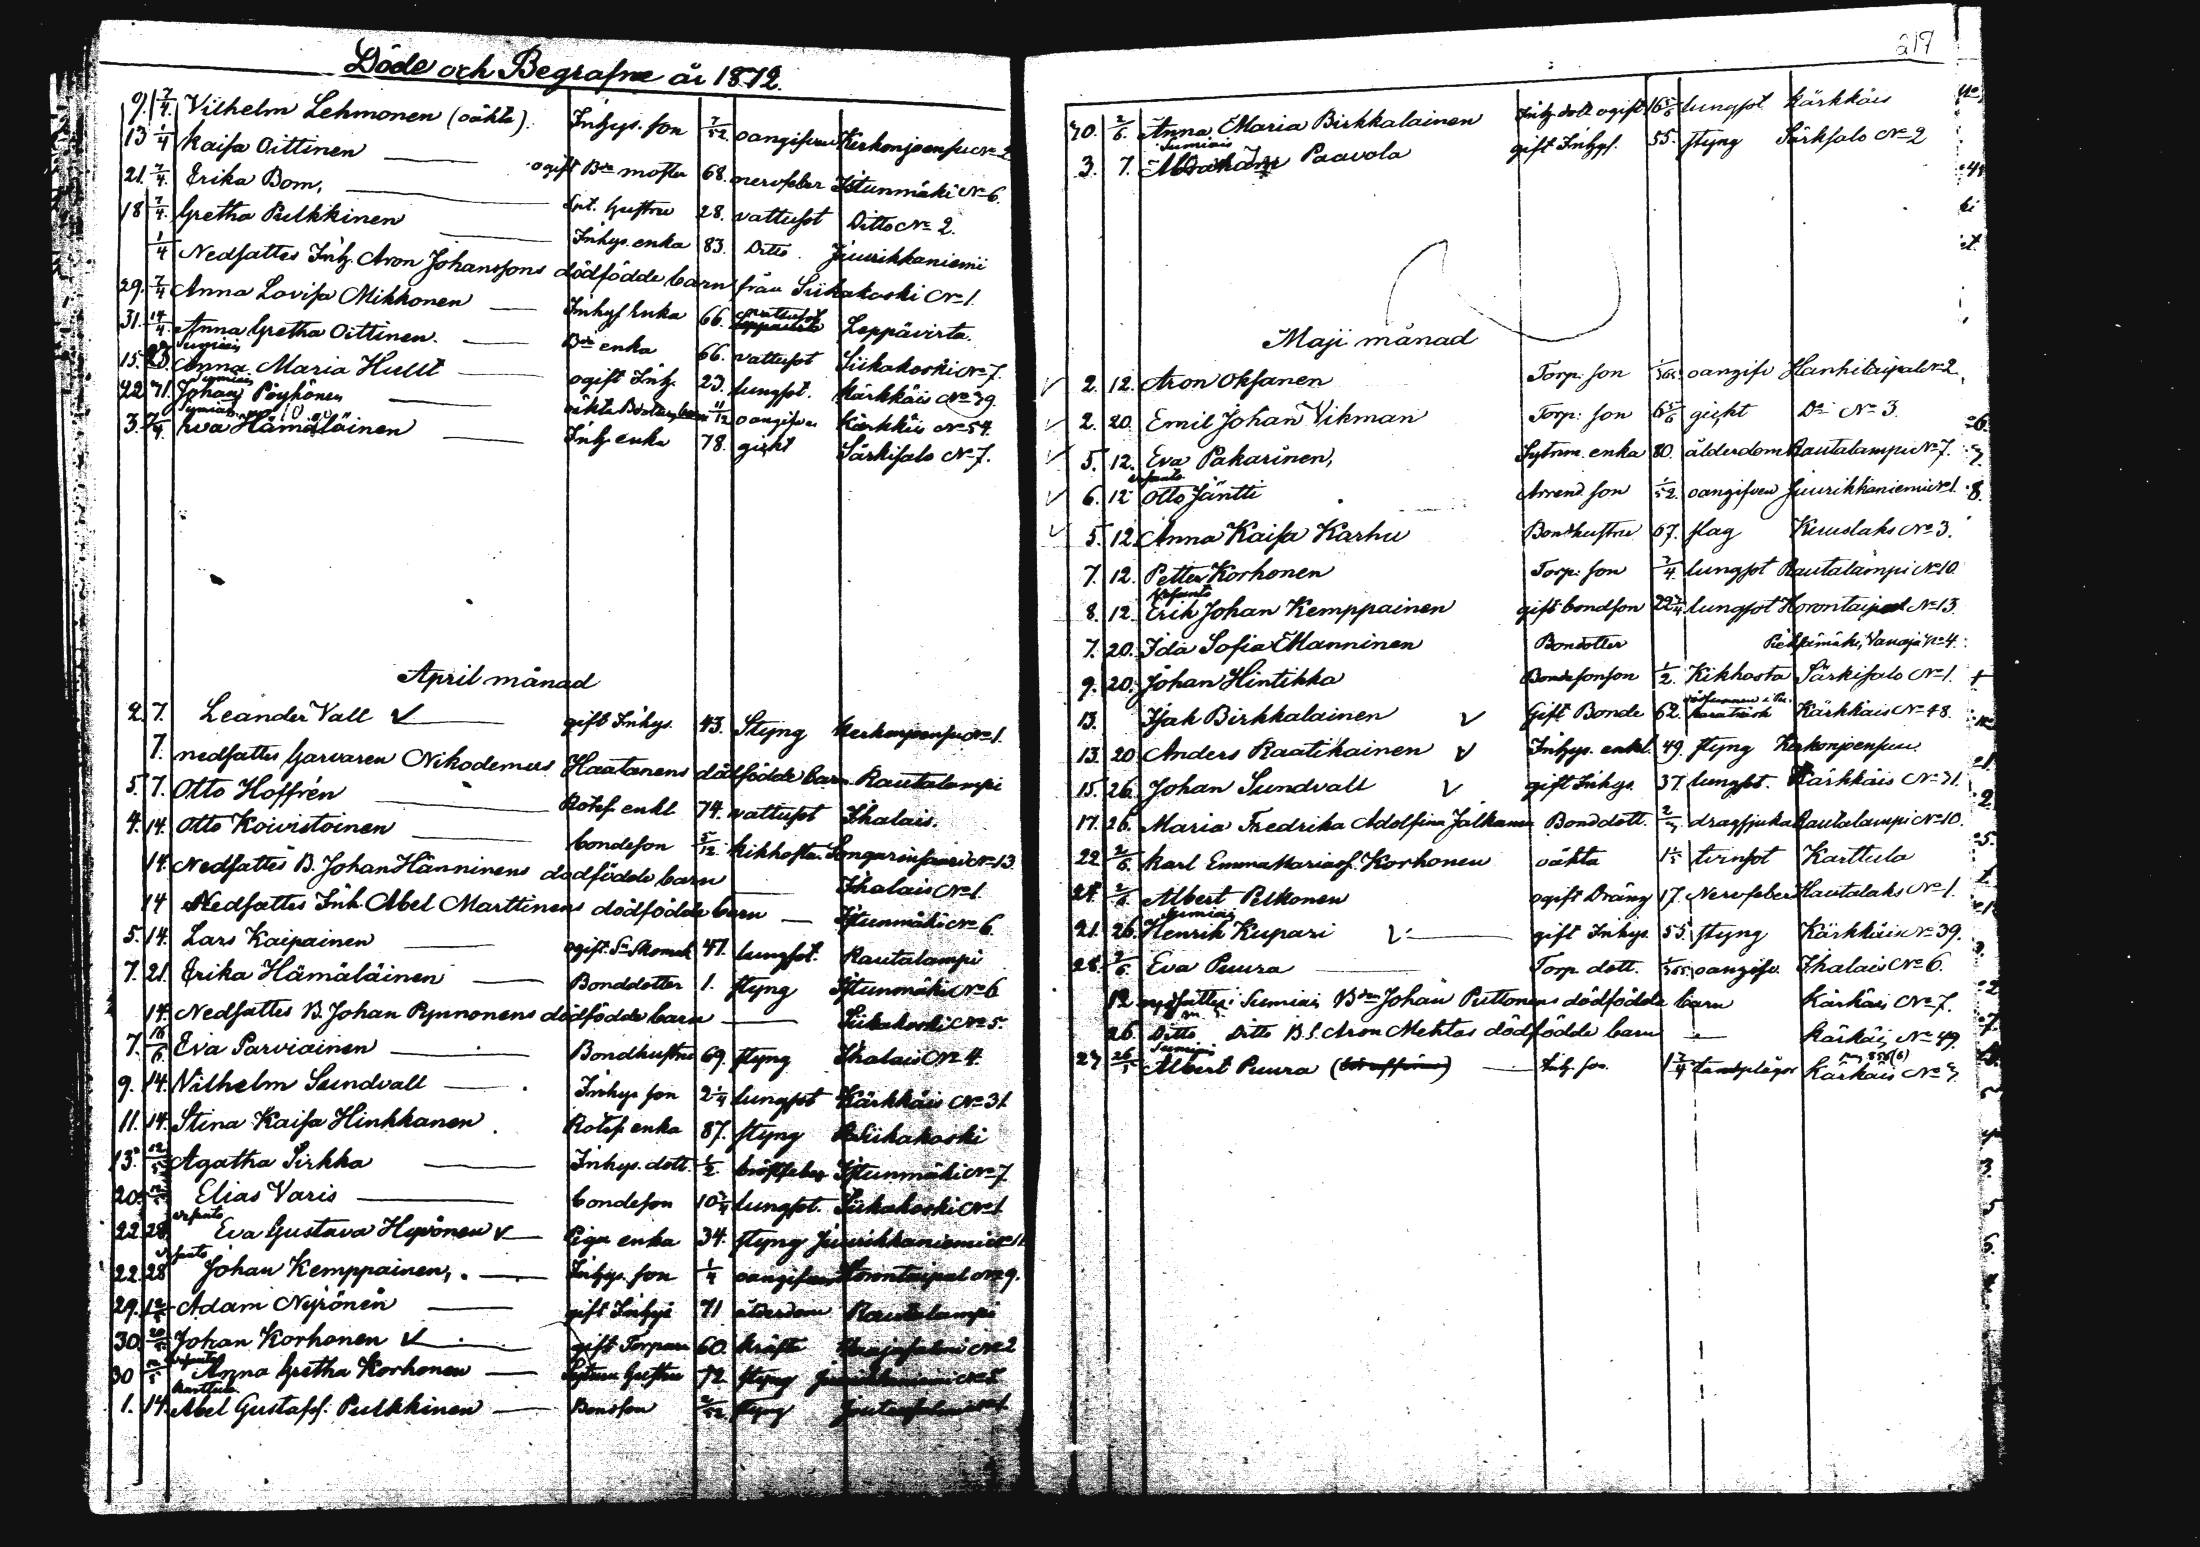 Döde och Begrafne år 1872.
9. 7/4. Vilhelm Lehmonen (oäkta). Inhys. son 7/52 oangifven Kerkonjoensu No 2
13 1/4 Kaisa Oittinen ogift Bde moster 68. nervfeber Istunmäki No 6.
21. 7/4. Erika Bom, hustru 28. vattusot Ditto No 2.
18 7/4. Gretha Pulkkinen Inhys. enka 83. Ditto Juurikkaniemi
1/4 Nedsattes Inh. Aron Johanssons dödfödde barn från Siikakoski No 1.
29. 7/4 Anna Lovisa Mikkonen Inhys Enka 66. vattusot Leppävirta.
31. 14/4. Anna Gretha Oittinen. Bde enka 66. vattusot Siikakoski No 7.
Sumiais
15. Anna Maria Hullt ogift Inh. 23. lungsot. Kärkkäis No 39
Sumiais
22 Johan Pöyhönen 11/12 oangifven Kärkkäis No 54.
Sumiais
3. 7/4 Eva Hämäläinen Inh. enka 78. gickt Särkisalo No 7.
April månad
2. 7. Leander Vall gift Inhys. 43. Styng Kerkonjoensu No 1.
7. nedsattes Garvaren Nikodemus Haatanens dödfödde barn Rautalampi
5. 7. Otto Hoffrén Rotef. enkl 74. vattusot Ihalais.
4. 14. Otto Koivistoinen bondeson 5/12. kikhosta Songarinsaari No 13
14. Nedsattes B. Johan Hänninens dödfödde barn Ihalais No 1.
14 Nedsattes Inh. Abel Marttinens dödfödde barn Istunmäki No 6.
5. 14. Lars Kaipainen ogift 47. lungsot. Rautalampi
7. 21. Erika Hämäläinen Bonddotter 1. styng Istunmäki No 6
14. Nedsattes B. Johan Rynnonens dödfödde barn Siikakoski No 5.
7. 16/6. Eva Parviainen Bondhustru 69. styng Ihalais No 4.
9. 14. Vilhelm Sundvall Inhys son 2 1/4 lungsot Kärkkäis No 31
11. 14. Stina Kaisa Hinkkanen Rotef. enka 87. styng Siikakoski
13. 12/5 Agatha Sirkka Inhys. dott. 1/2. bröstfeber Istunmäki No 7.
20. 12/5 Elias Varis bondeson 10 3/4 lungsot. Siikakoski No 1
Vesanto
22 28. Eva Gustava Hyvönen Piga enka 34. styng Juurikkaniemi No 11
Vesanto
22. 28 Johan Kemppainen, Inhys. son 1/4 oangifven Horontaipal No 9.
29. 12/5 Adam Nyrönen gift Inhys 71 ålderdom Rautalampi
30. 20/5 Johan Korhonen gift Torpare 60. kräfta No 2
Vesanto
30 12/5 Anna Gretha Korhonen 72 styng Juurikkaniemi No 5
Karttula
1. 14. Abel Gustafs. Pulkkinen Bondson 2/52 styng
217
30. 2/6. Anna Maria Birkkalainen Inh. dott ogift 16 5/6 lungsot Kärkkäis
Sumiais
3. 7. Paavola gift Inhys. 55. styng Särkisalo No 2
Maji månad
2. 12. Aron Oksanen Torp. son 1/365 oangifv Hanhitaipal No 2.
2. 20. Emil Johan Vikman Torp. son 6 5/6 gickt Do No 3.
5. 12. Eva Pakarinen, Sytnin. enka 80. ålderdom Rautalampi No 7.
Vesanto
6. 12 Otto Jäntti Arrend. son 1/52. oangifven Juurikkaniemi No 1.
5. 12. Anna Kaisa Karhu Bondhustru 67. slag Kuuslaks No 3.
7. 12. Petter Korhonen Torp. son 3/4. lungsot Rautalampi No 10.
Vesanto
8. 12. Erik Johan Kemppainen gift bondson 22 3/4 lungsot Horontaipal No 13.
7. 20. Ida Sofia Manninen Bondotter Pieksämäki, Vanaja No 4.
9. 20. Johan Hintikka Bondesonson 1/2. Kikhosta Särkisalo No 1.
13. Isak Birkkalainen Gift Bonde 62. Kärkkäis No 48.
13. 20 Anders Raatikainen Inhys. enkl. 49. styng Kerkonjoensuu
15. 26. Johan Sundvall gift Inhys. 37. lungsot. Kärkkäis No 31.
17. 26. Maria Fredrika Adolfina Jalkanen Bonddott. dragsjuka Rautalampi No 10.
22 2/6. Karl Emma Mariaf. Korhonen oäkta tvinsot Karttula
24. 2/6. Albert Pelkonen ogift Dräng 17. Nervfeber Hautalaks No 1.
Sumiais
21. 26. Henrik Kupari gift Inhys. 55. styng Kärkkäis No 39.
28. 2/6. Eva Puura Torp. dott. 1/365 oangifv. Ihalais No 6.
12 nedsattes i Sumiais Bde Johan Puttonens dödfödde barn Kärkäis No 7.
26. Ditto Ditto B.s. Aron Mehtos dödfödde barn Kärkäis No 49.
Sumiais
27 26/5 Albert Puura Inh. son. 1 3/4 tandplågor Kärkäis No 7